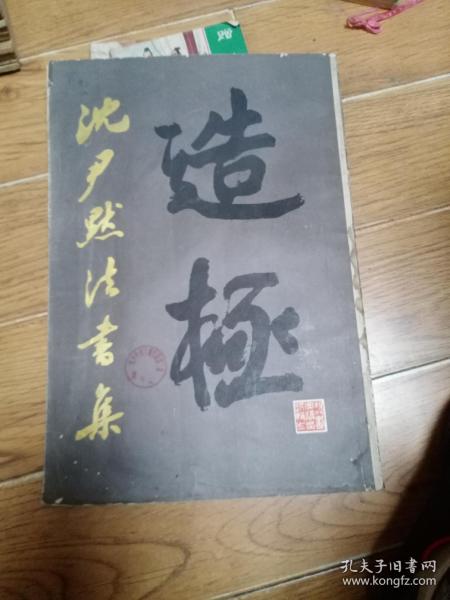 沈尹默法書集
造極
孔夫子旧书网
www.kongfz.com